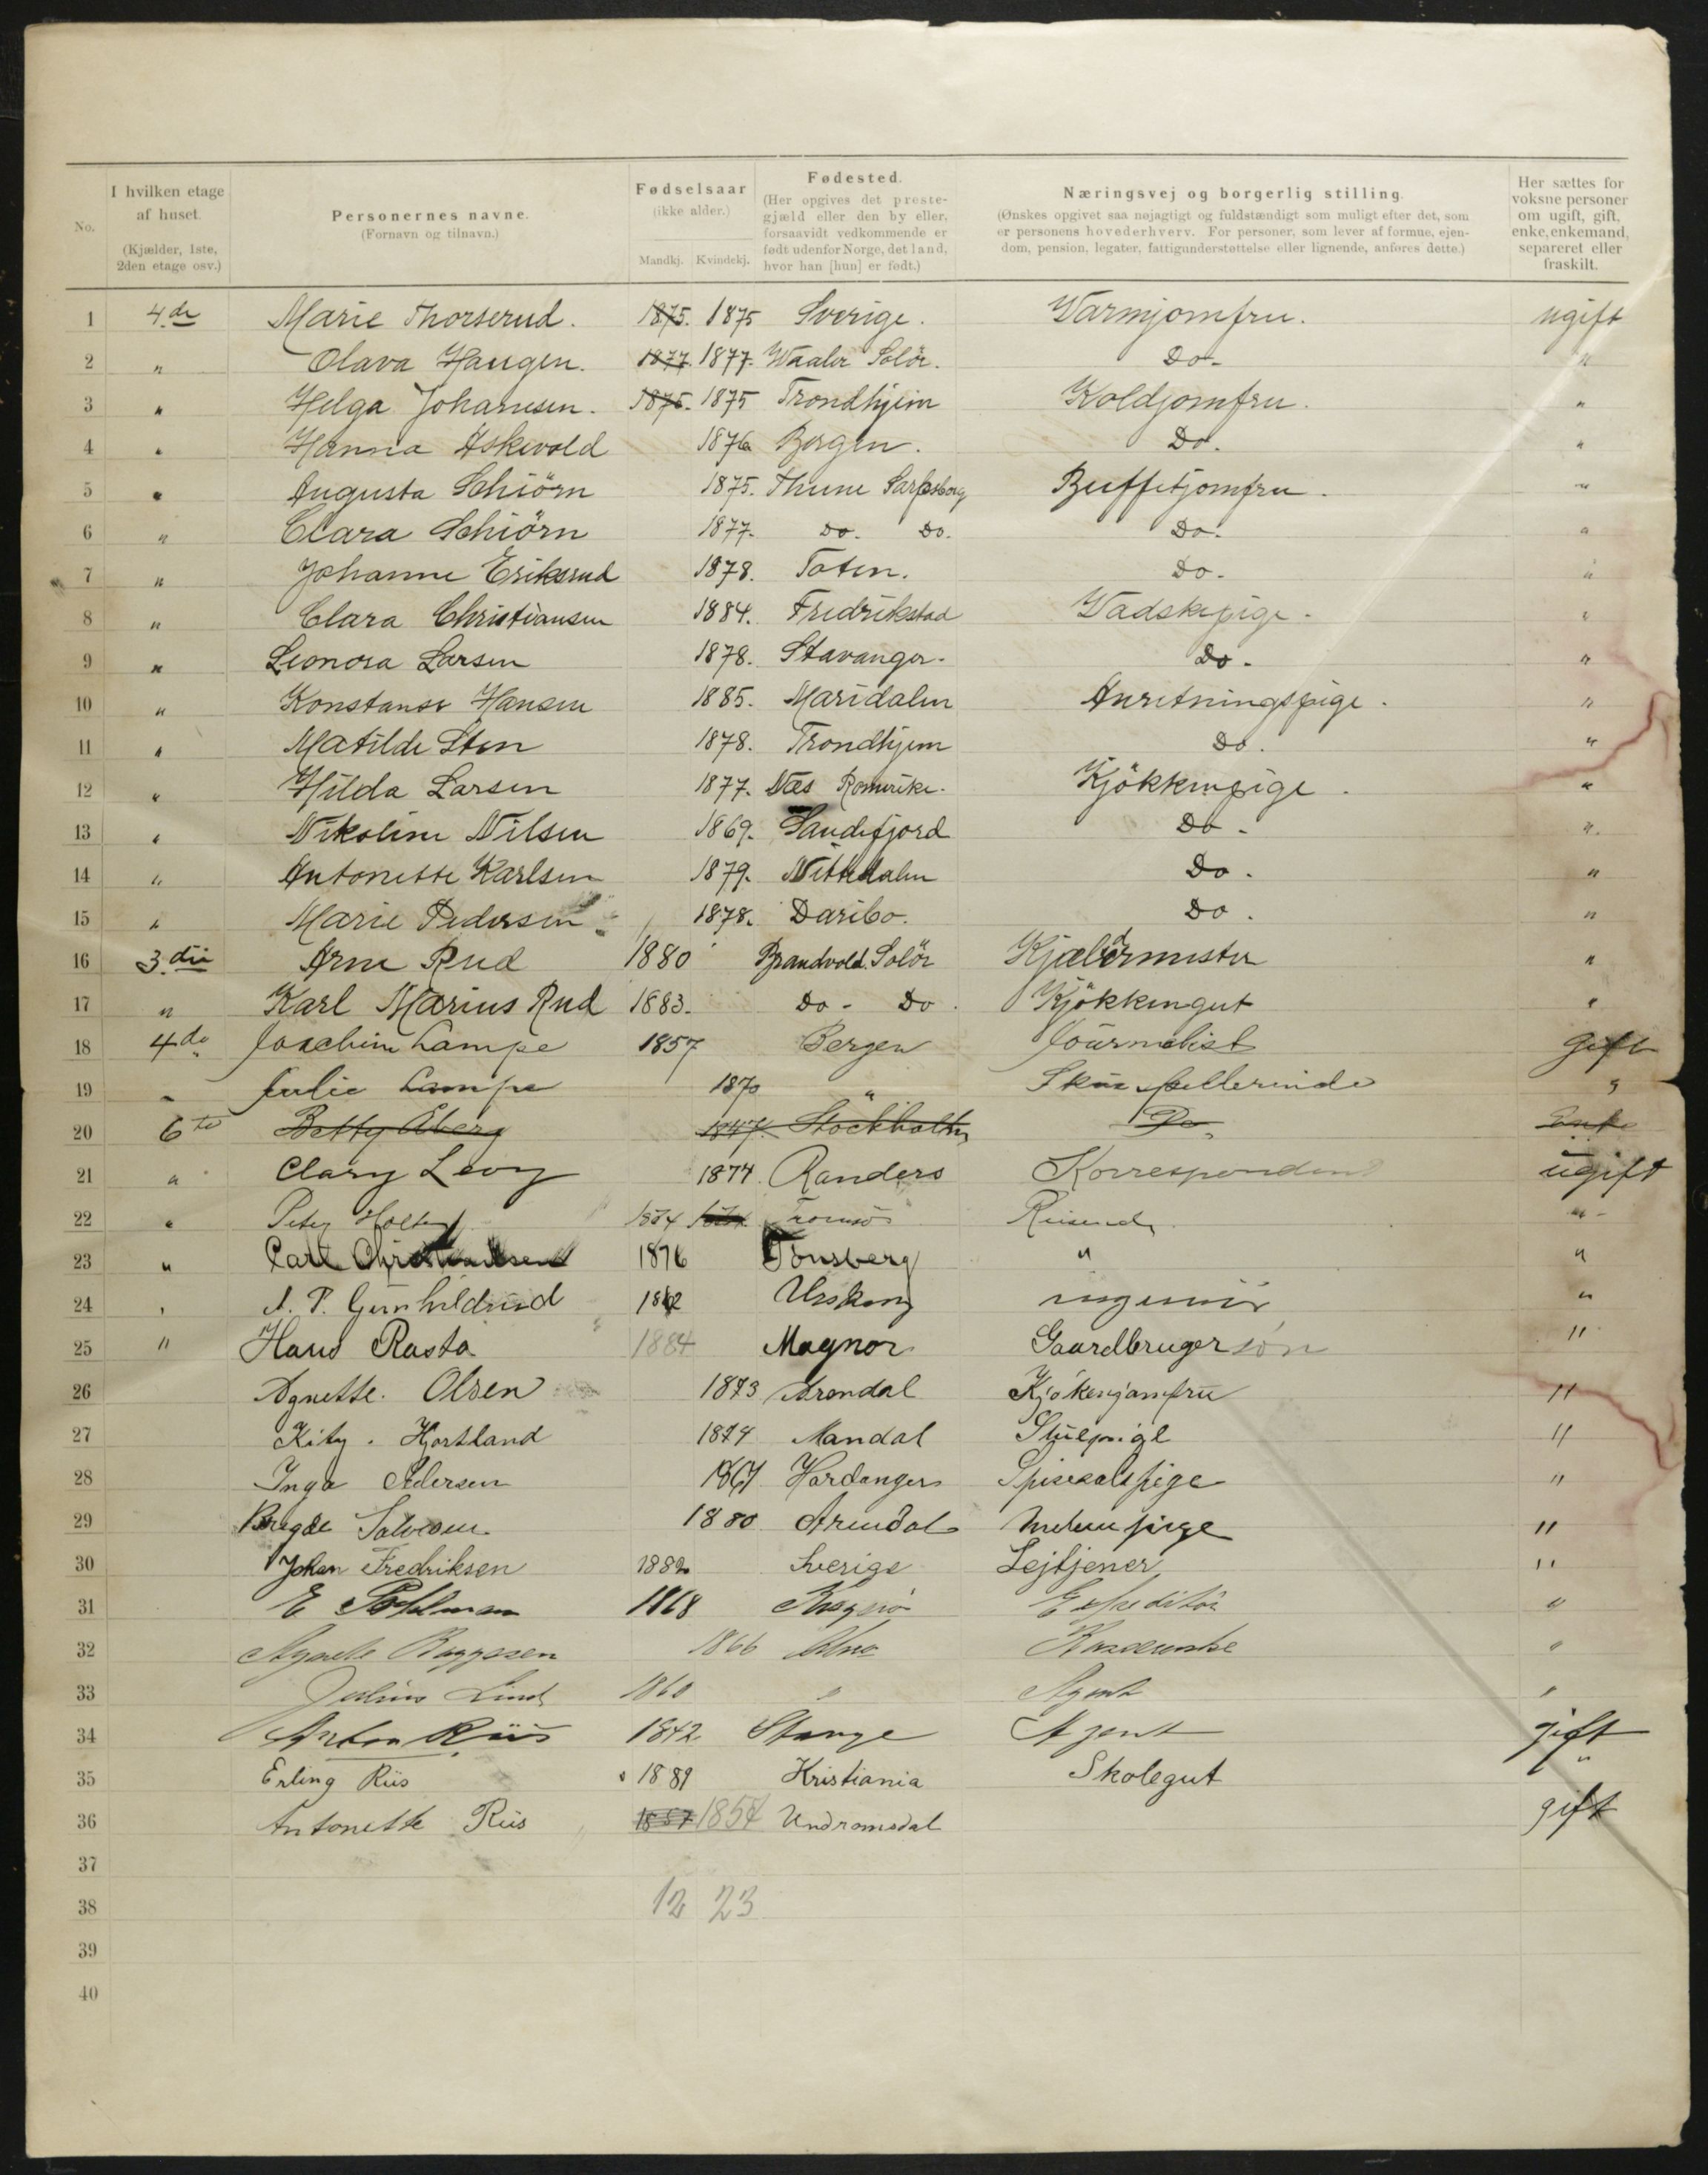 No.
I hvilken etage af huset. (Kjælder, 1ste, 2den etage osv.)
Personernes navne. (Fornavn og tilnavn.)
Fødselsaar (ikke alder.) Mandkj. Kvindekj.
Fødested. (Her opgives det prestegjæld eller den by eller, forsaavidt vedkommende er født udenfor Norge, det land, hvor han [hun] er født.)
Næringsvej og borgerlig stilling. (Ønskes opgivet saa nøjagtigt og fuldstændigt som muligt efter det, som er personens hovederhverv. For personer, som lever af formue, ejendom, pension, legater, fattigunderstøttelse eller lignende, anføres dette.)
Her sættes for voksne personer om ugift, gift, enke, enkemand, separeret eller fraskilt.
1 4de Marie Thorserud. 1875. 1875 Sverige. Varmjomfru. ugift
2 " Olava Haugen. 1877. 1877. Waaler Solör. Do- "
3 " Helga Johannesen. 1875. 1875 Trondhjem Koldjomfru. "
4 " Hanna Askevold 1876 Bergen. Do. "
5 " Augusta Schiörn 1875. Thune Sarpsborg Buffetjomfru. "
6 " Clara Schiörn 1877. Do. Do. Do. "
7 " Johanne Eriksrud 1878. Toten. Do. "
8 " Clara Christiansen 1884. Fredrikstad Vadskepige. "
9 " Leonora Larsen 1878. Stavanger. Do. "
10 " Konstanse Hansen 1885. Maridalen Anretningspige. "
11 " Matilde Sten 1878. Trondhjem Do. "
12 " Hilda Larsen 1877. Næs Romerike. Kjökkenpige. "
13 " Nikoline Nilsen 1869. Sandefjord Do. "
14 " Antonette Karlsen 1879. Nittedalen Do. "
15 " Marie Pedersen 1878. Daribo. Do. "
16 3die Arne Rud 1880 Brandvold. Solör Kjældermester "
17 " Karl Marius Rud 1883. Do - Do. Kjökkengut "
18 4de Joachim Lampe 1857 Bergen Journalist gift
19 " Julie Lampe 1870 " Skuespillerinde "
20 6te Betty Åberg 1847. Stockholm Do. Enke
21 " Clary Levy 1874. Randers Korrespondent ugift
22 " Peter Holter 1874 Tromsø Reisende "
23 " Carl Christiansen 1876 Tønsberg " "
24 " A. P. Gunhildrud 1862 Urskoug ingeniør "
25 " Hans Rasta 1884 Magnor Gaardbrugersøn "
26 Agnette. Olsen 1873 Arendal Kjøkenjomfru "
27 Kity. Hjortland 1874 Mandal Stuepige "
28 Inga Pedersen 1867 Hardanger Spisesalspige "
29 Bregde Salvesen 1880 Arendal pige "
30 Johan Fredriksen 1882 Sverige Lejtjener "
31 E Pohlman 1868 Kragerø Expeditør "
32 Agnete Baggesen 1866 "
33 Julius Lind 1860 " Agent "
34 Anton Riis 1842 Stange Agent gift
35 Erling Riis 1889 Kristiania Skolegut "
36 Antonette Riis 1857 1857 Undromsdal gift
37
38 12 23
39
40